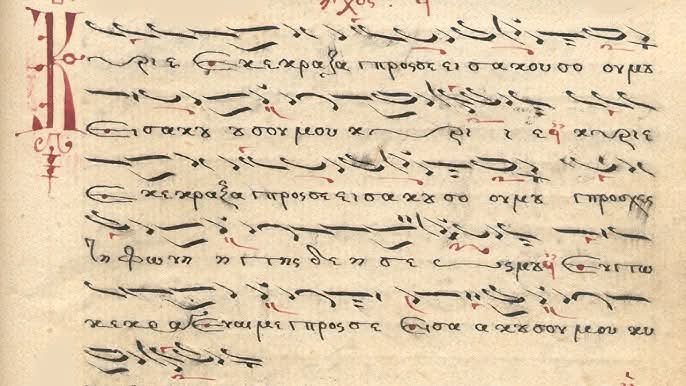 ἦχος
Κυριε Εκεκραξα προς σε εισακουσο ονμȣ
Εισακȣ ȣσονμου κυρι ι ε κυριε
Εκεκραξα προς σε εισακȣσο ονμȣ προσχες
τη φωνη η της δε η σε ωςμȣ Εν τω
κεκρα Εναιμε προς σε Εισα ακȣσονμου κυ